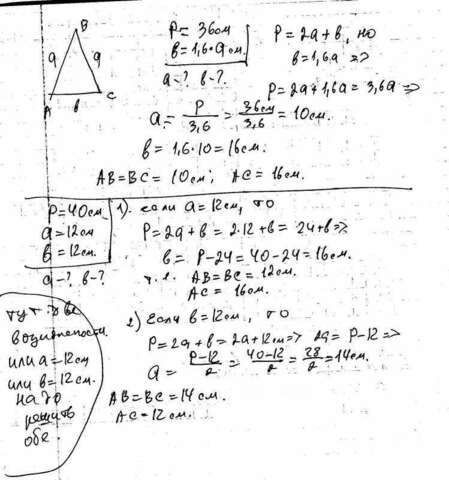 B
a
a
A
b
C
P = 36см
b = 1,6·a см
a-? b-?
P = 2a+b, но
b = 1,6a =>
P = 2a+1,6a = 3,6a =>
a = P/3,6 = 36см/3,6 = 10см.
b = 1,6·10 = 16см.
AB=BC = 10см; AC = 16см.
P=40см
a=12см
b=12см.
a-? b-?
1). если a=12см, то
P=2a+b = 2·12+b = 24+b=>
b = P-24=40-24=16см.
т.е. AB=BC=12см.
AC = 16см.
тут две
возможности
или a=12см
или b=12см.
надо
решить
обе.
2) Если b=12см, то
P=2a+b=2a+12см=> 2a=P-12=>
a = P-12/2 = 40-12/2 = 28/2 = 14см.
AB=BC=14см.
AC=12см.